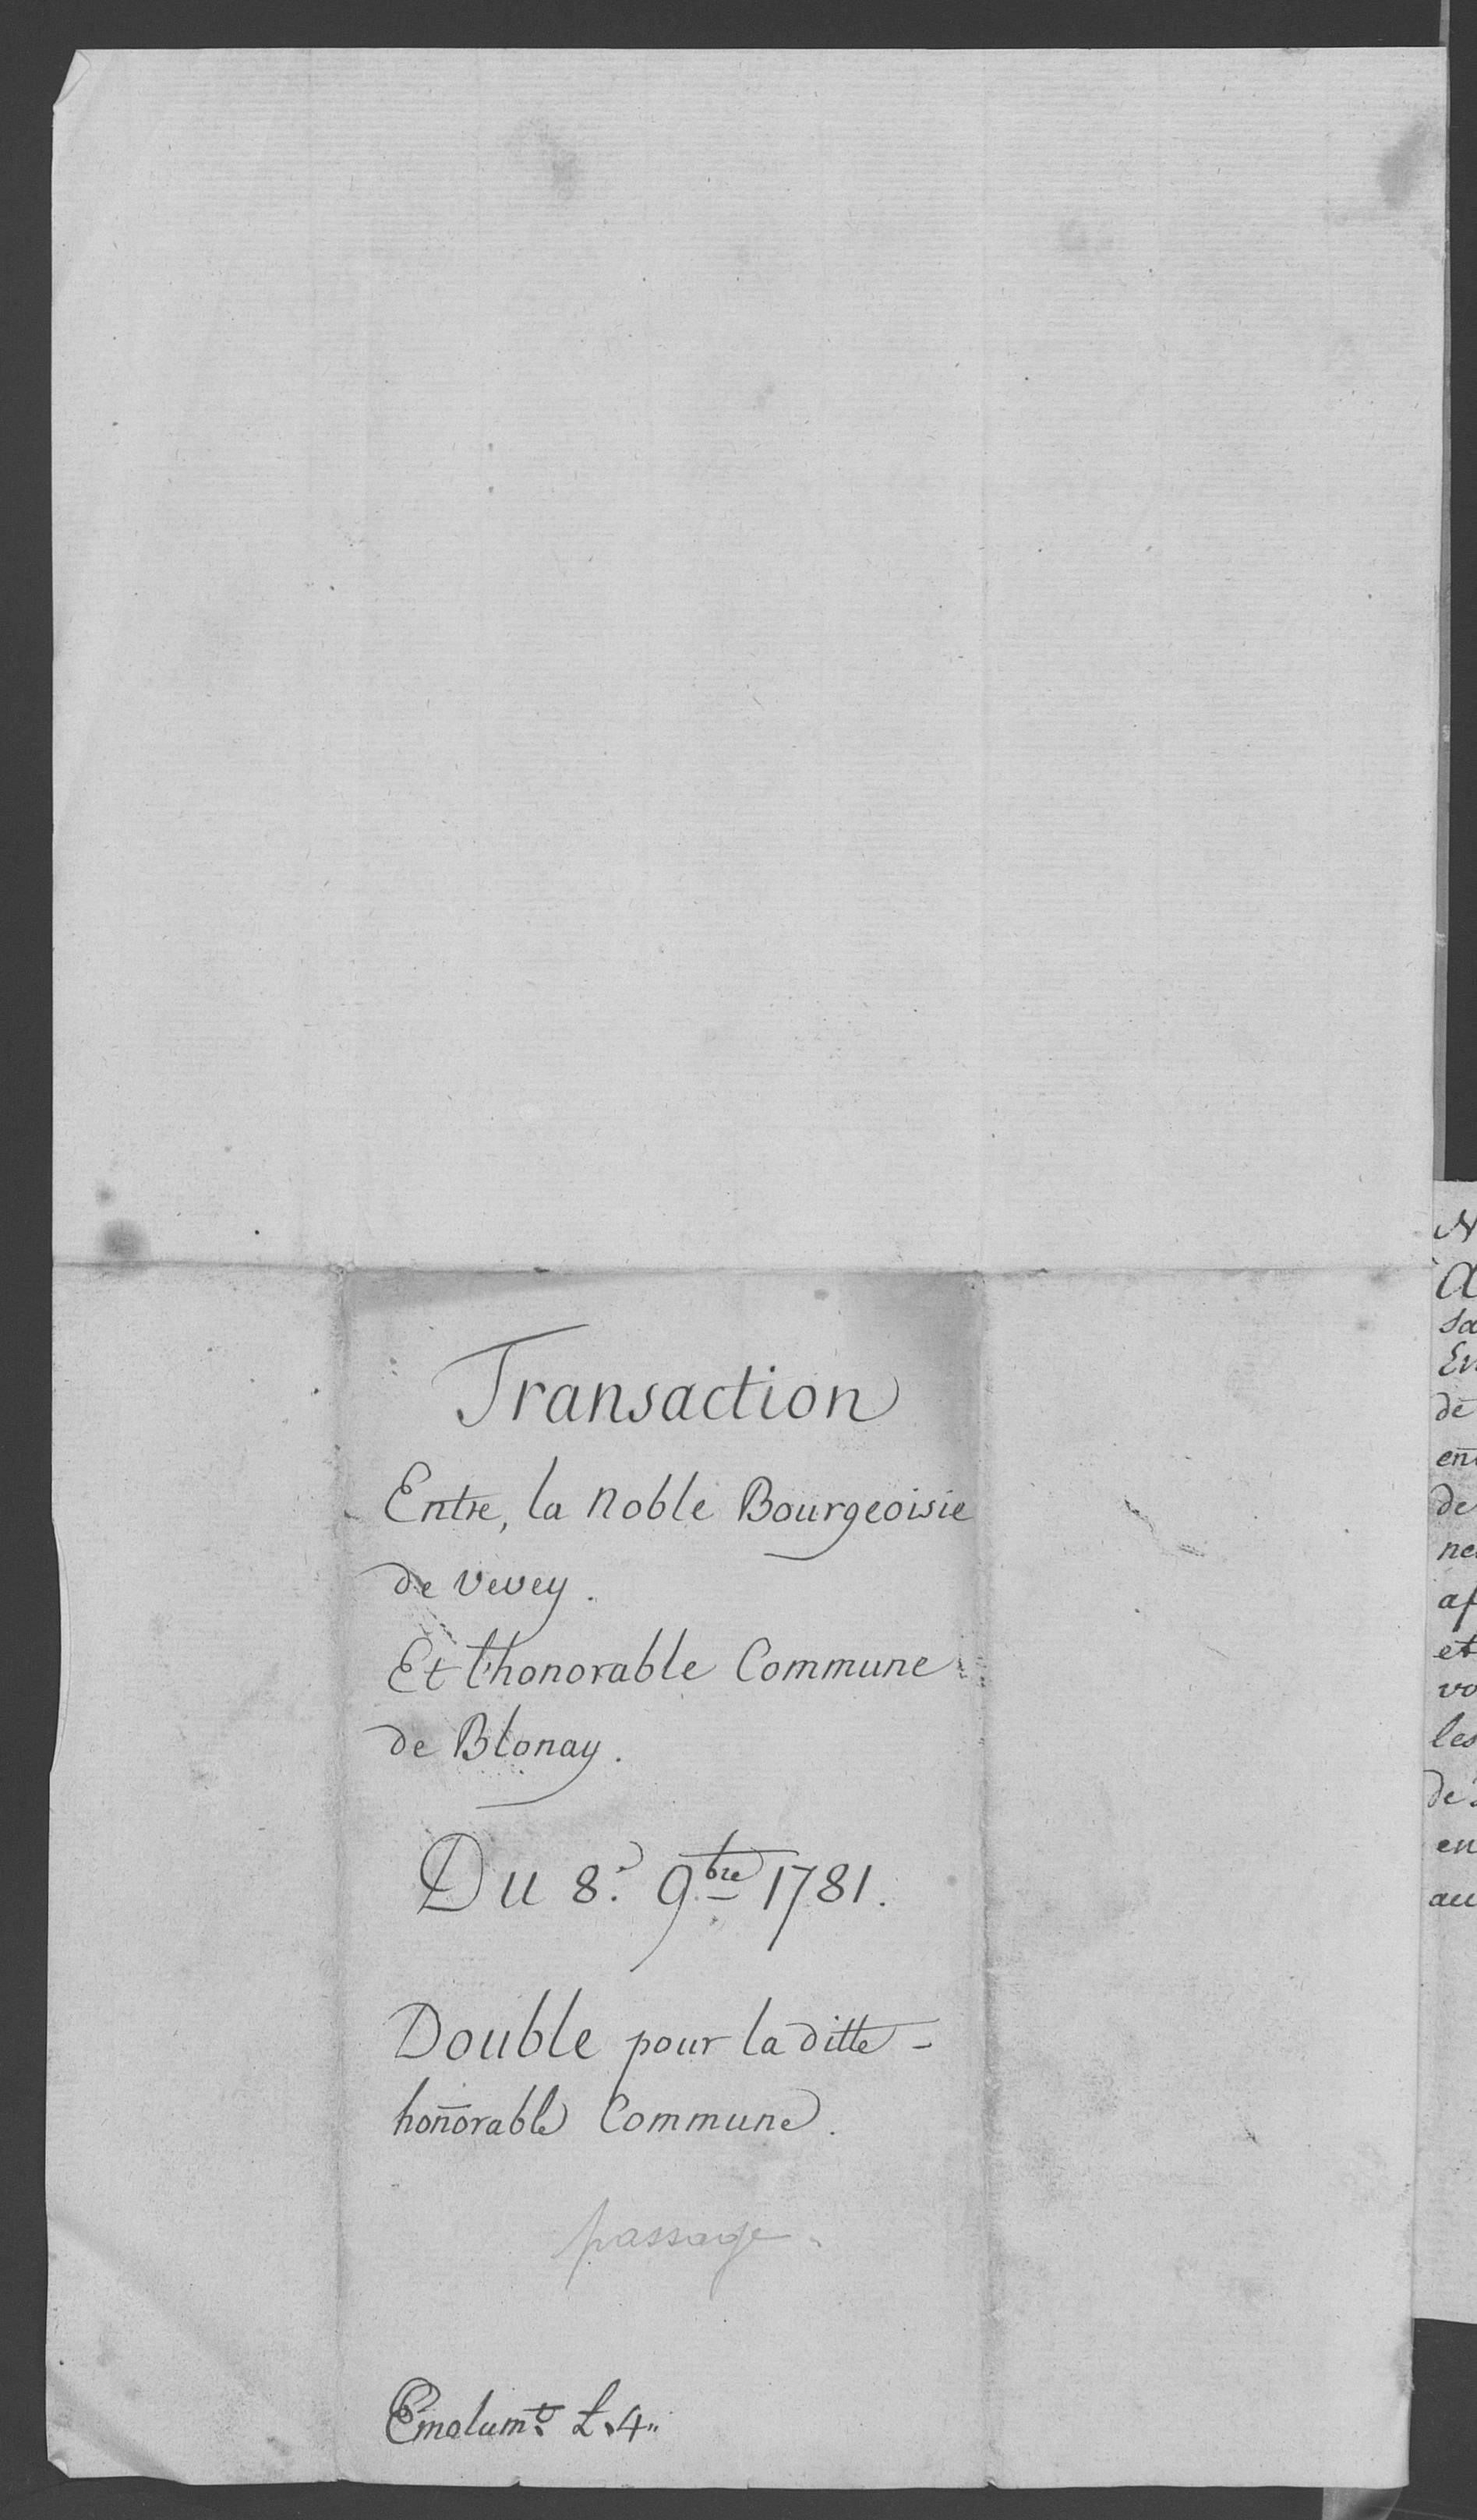 Transaction
Entre, la noble Bourgeoisie
de vevey.
Et l'honorable Commune
de Blonay.
Du 8.e 9bre 1781.
Double pour la ditte -
hon̄orable Commune.
passage.
Emolumt. L.4"
N
a
sa
En
de
en
de
ne
af
et
vo
les
de
en
au